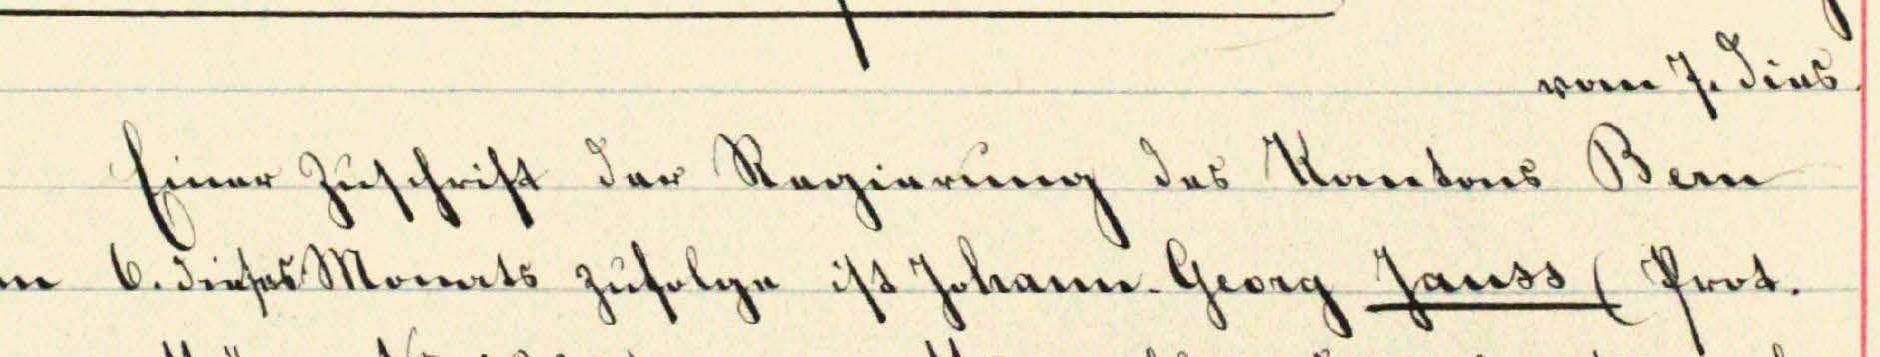 vom 7. dies.
Einer Zuschrift der Regierung des Kantons Bern
6. dieses Monats zufolge ist Johann-Georg Jauss (Prot.